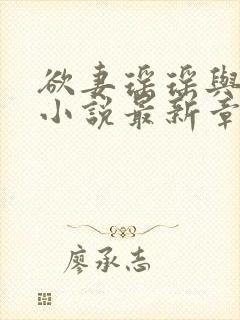 欲妻瑶瑶與
小說最新章
廖承志